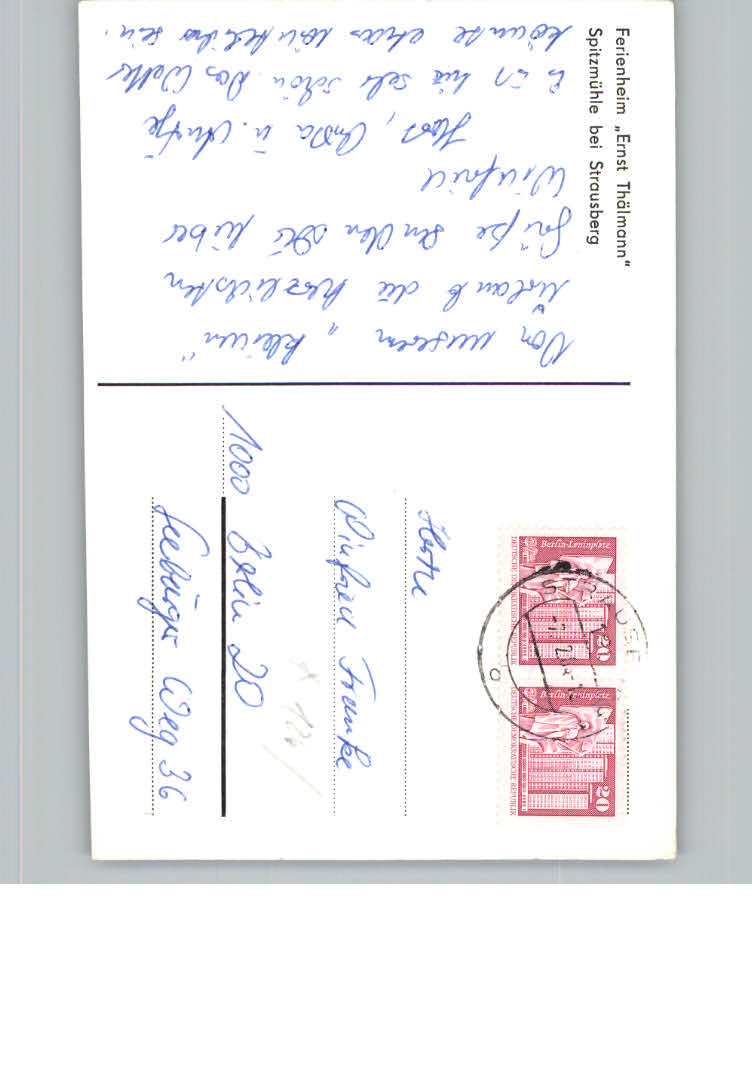 Ferienheim „Ernst Thälmann"
Spitzmühle bei Strausberg
Von unserem „kleinen"
Urlaub die herzlichsten
Grüße senden Dir lieber
Winfried
Horst, u. Antje
Es ist hier sehr schön. Das Wetter
könnte etwas winterlicher sein.
Berlin-Leninplatz
20
DEUTSCHE DEMOKRATISCHE REPUBLIK
Berlin-Leninplatz
20
DEUTSCHE DEMOKRATISCHE REPUBLIK
Herrn
Winfried Franke
1000 Berlin 20
Seeburger Weg 36